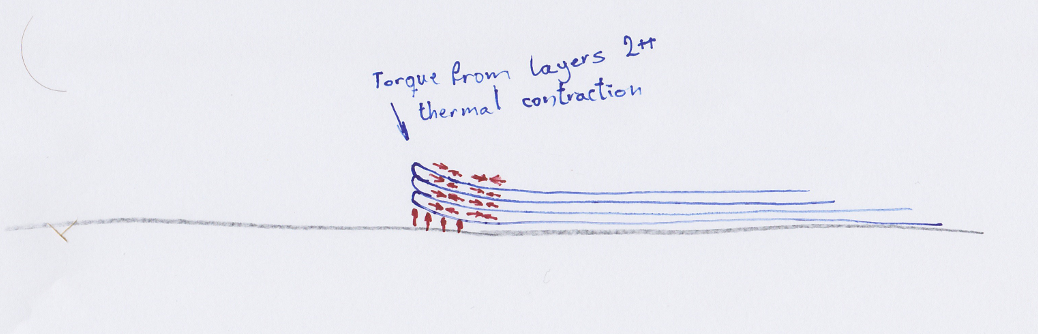 Torque from layers 2++
thermal contraction